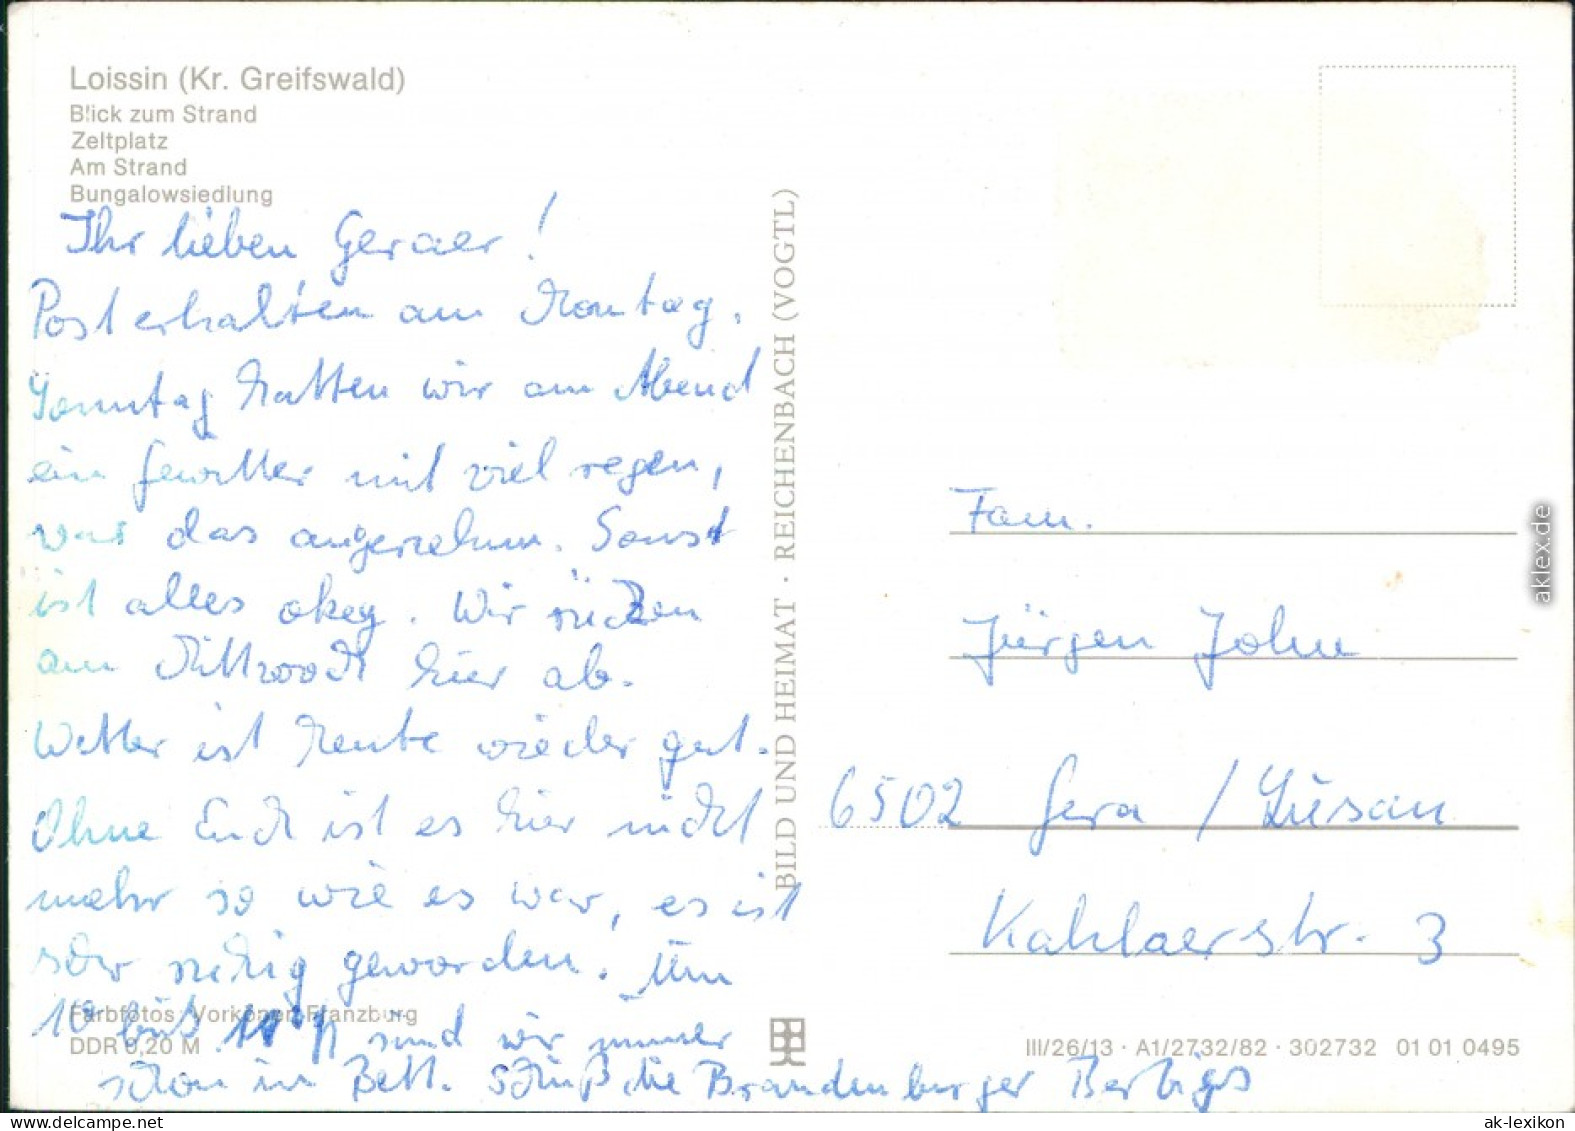 Loissin (Kr. Greifswald)
Blick zum Strand
Zeltplatz
Am Strand
Bungalowsiedlung
Ihr lieben Geraer!
Post erhalten am Montag.
Sonntag hatten wir am Abend
ein Gewitter mit viel regen,
war das angenehm. Sonst
ist alles okey. Wir rücken
am Mittwoch hier ab.
Wetter ist heute wieder gut.
Ohne Euch ist es hier nicht
mehr so wie es war, es ist
sehr ruhig geworden. Um
10 bis sind wir immer
schon im Bett. Tschüß die Brandenburger
Farbfotos: Vorköper, Franzburg
DDR 0,20 M
BILD UND HEIMAT · REICHENBACH (VOGTL)
Fam.
Jürgen John
6502 Gera / Lusan
Kahlaerstr. 3
III/26/13 · A1/2732/82 · 302732 01 01 0495
aklex.de
ak-ansichtskarten.de